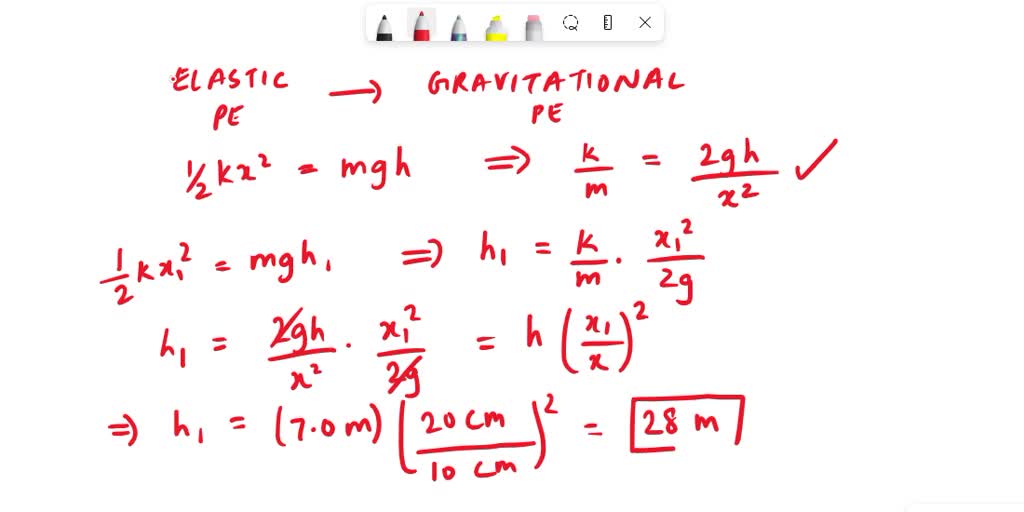 ELASTIC PE → GRAVITATIONAL PE
½ kx² = mgh ⇒ k/m = 2gh/x² ✓
1/2 kx₁² = mgh₁ ⇒ h₁ = k/m · x₁²/2g
h₁ = 2gh/x² · x₁²/2g = h (x₁/x)²
⇒ h₁ = (7.0 m) (20 cm/10 cm)² = 28 m